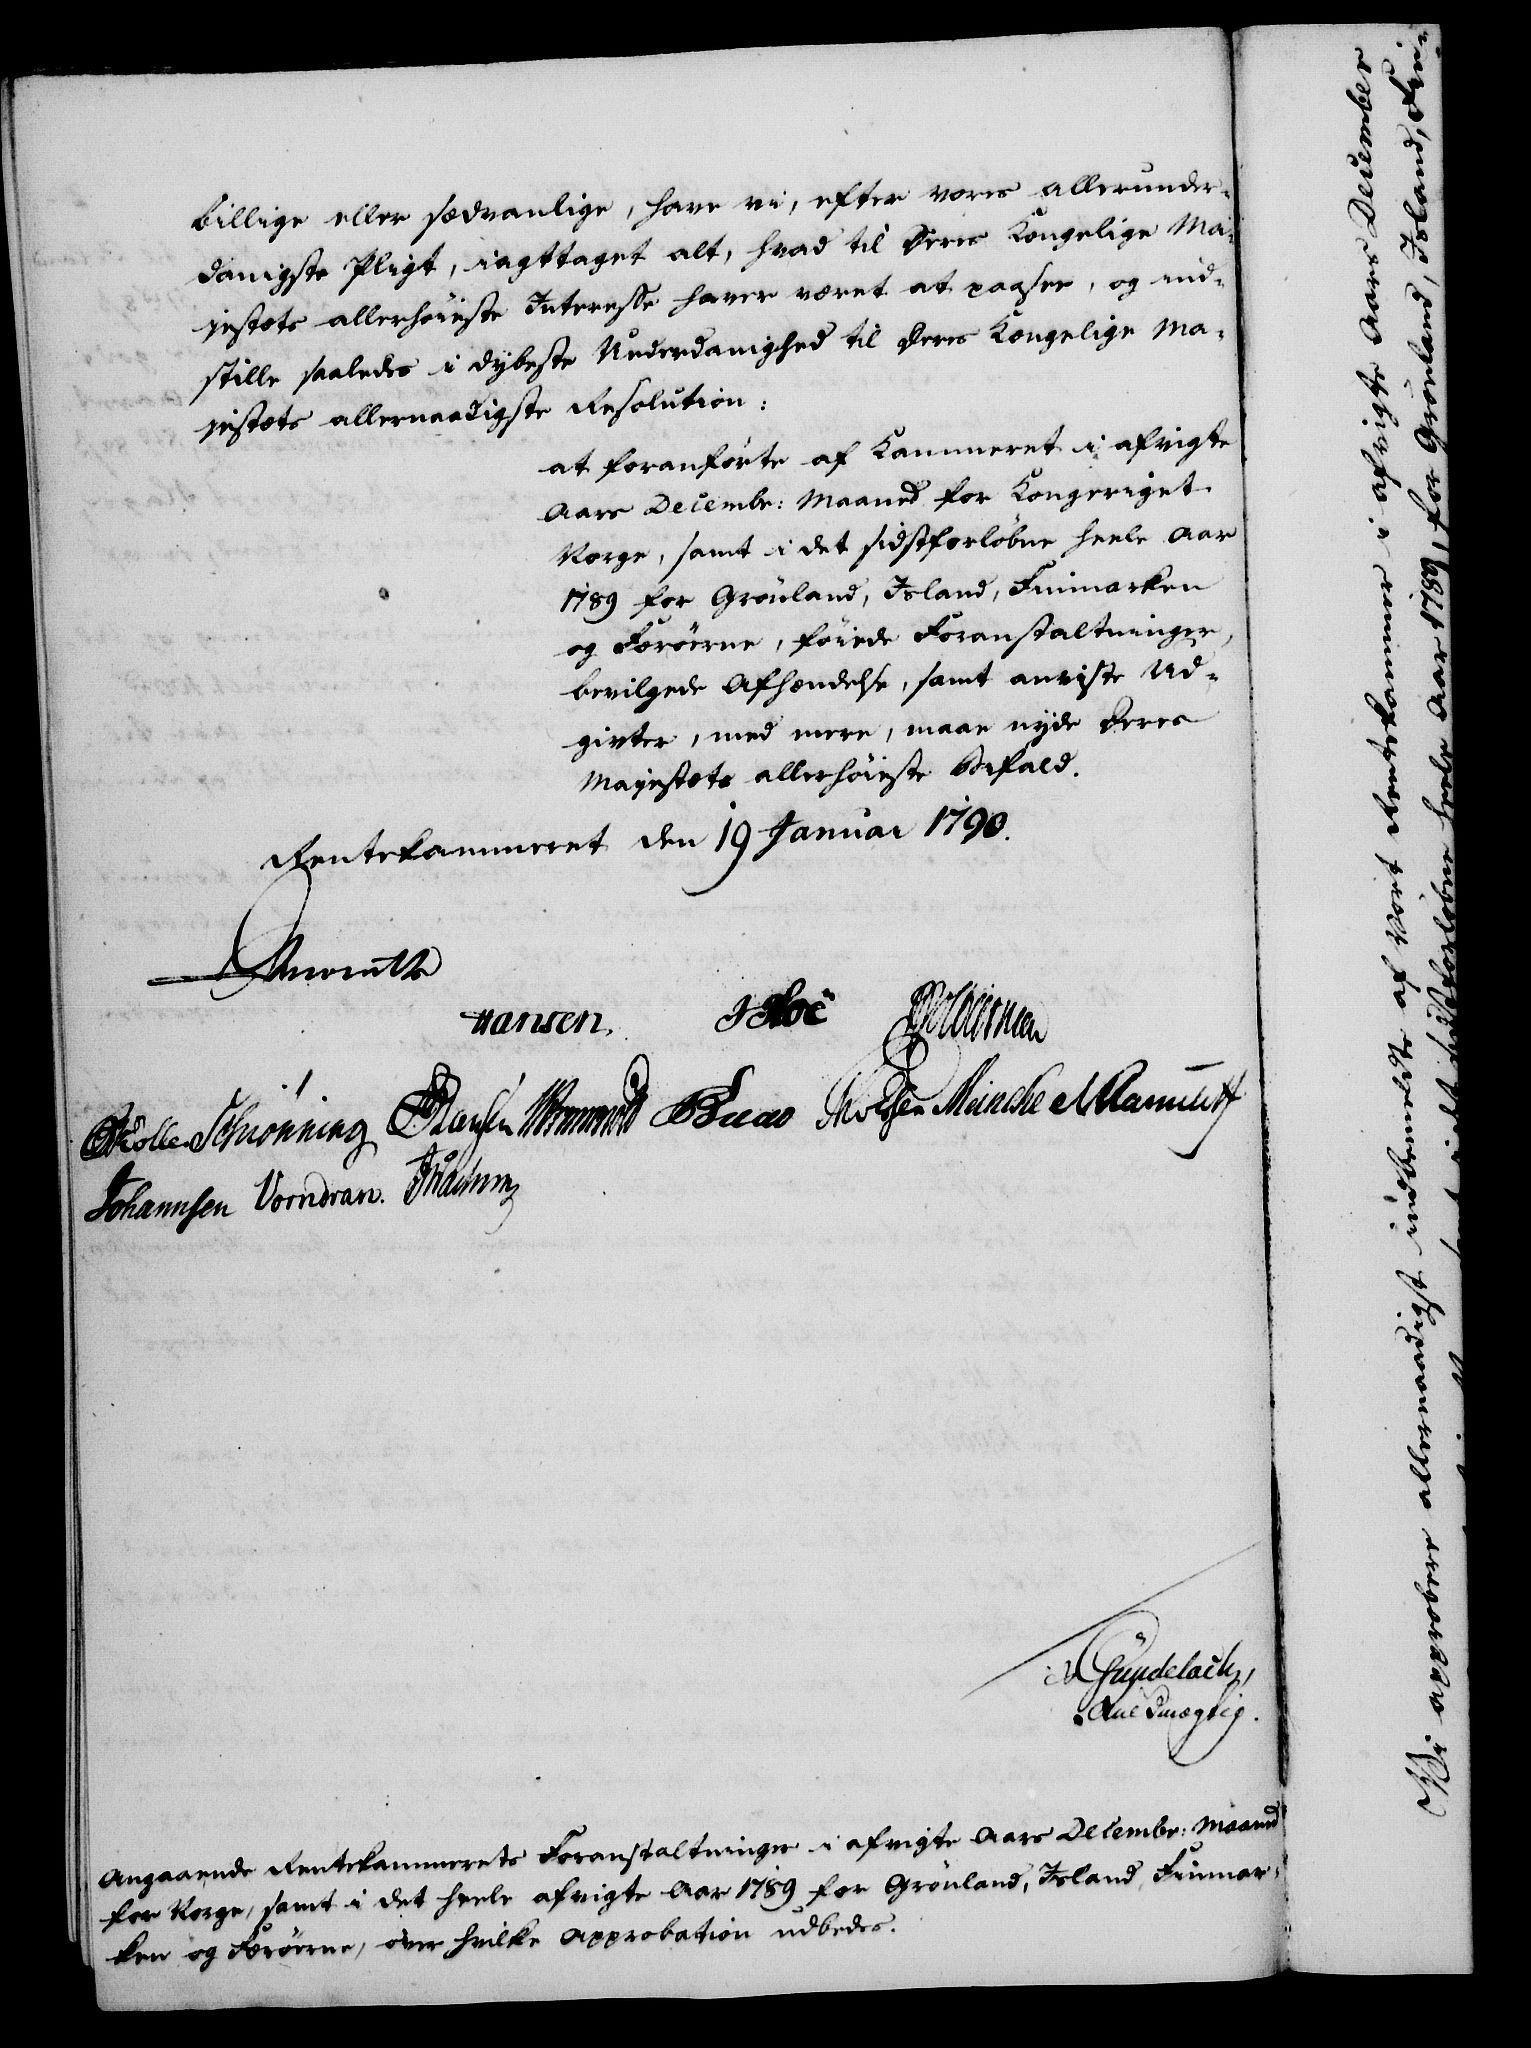 billige eller sædvanlige, have vi, efter vores allerunder-
danigste Pligt, iagttaget alt, hvad til Deres Kongelige Ma-
jestæts allerhöieste Interesse haver været at paasee, og ind-
stille saaledes i dybeste Underdanighed til Deres Kongelige Ma-
jestæts allernaadigste Resolution:
at foranförte af Kammeret i afvigte
Aars Decembr: Maaned for Kongeriget
Norge, samt i det sidstforløbne heele Aar
1789 for Grönland, Island, Finmarken
og Færöerne, föiede Foranstaltninger,
bevilgede Afhændelse, samt anviiste Ud-
givter, med mere, maae nyde Deres
Majestæts allerhöieste Bifald.
Rentekammeret den 19 Januar 1790.
Hansen.
Schiönning Meinche
Johannsen Vorndran.
Gundelach,
Angaaende Rentekammerets Foranstaltninger i afvigte Aars Decembr: Maaned
for Norge, samt i det heele afvigte Aar 1789 for Grönland, Island, Finmar-
ken og Færöerne, over hvilke Approbation udbedes.
Vi approbere allernaadigst indbemeldte af Vort Rentekammer i afvigte Aars December
for Grönland, Island, Fin-